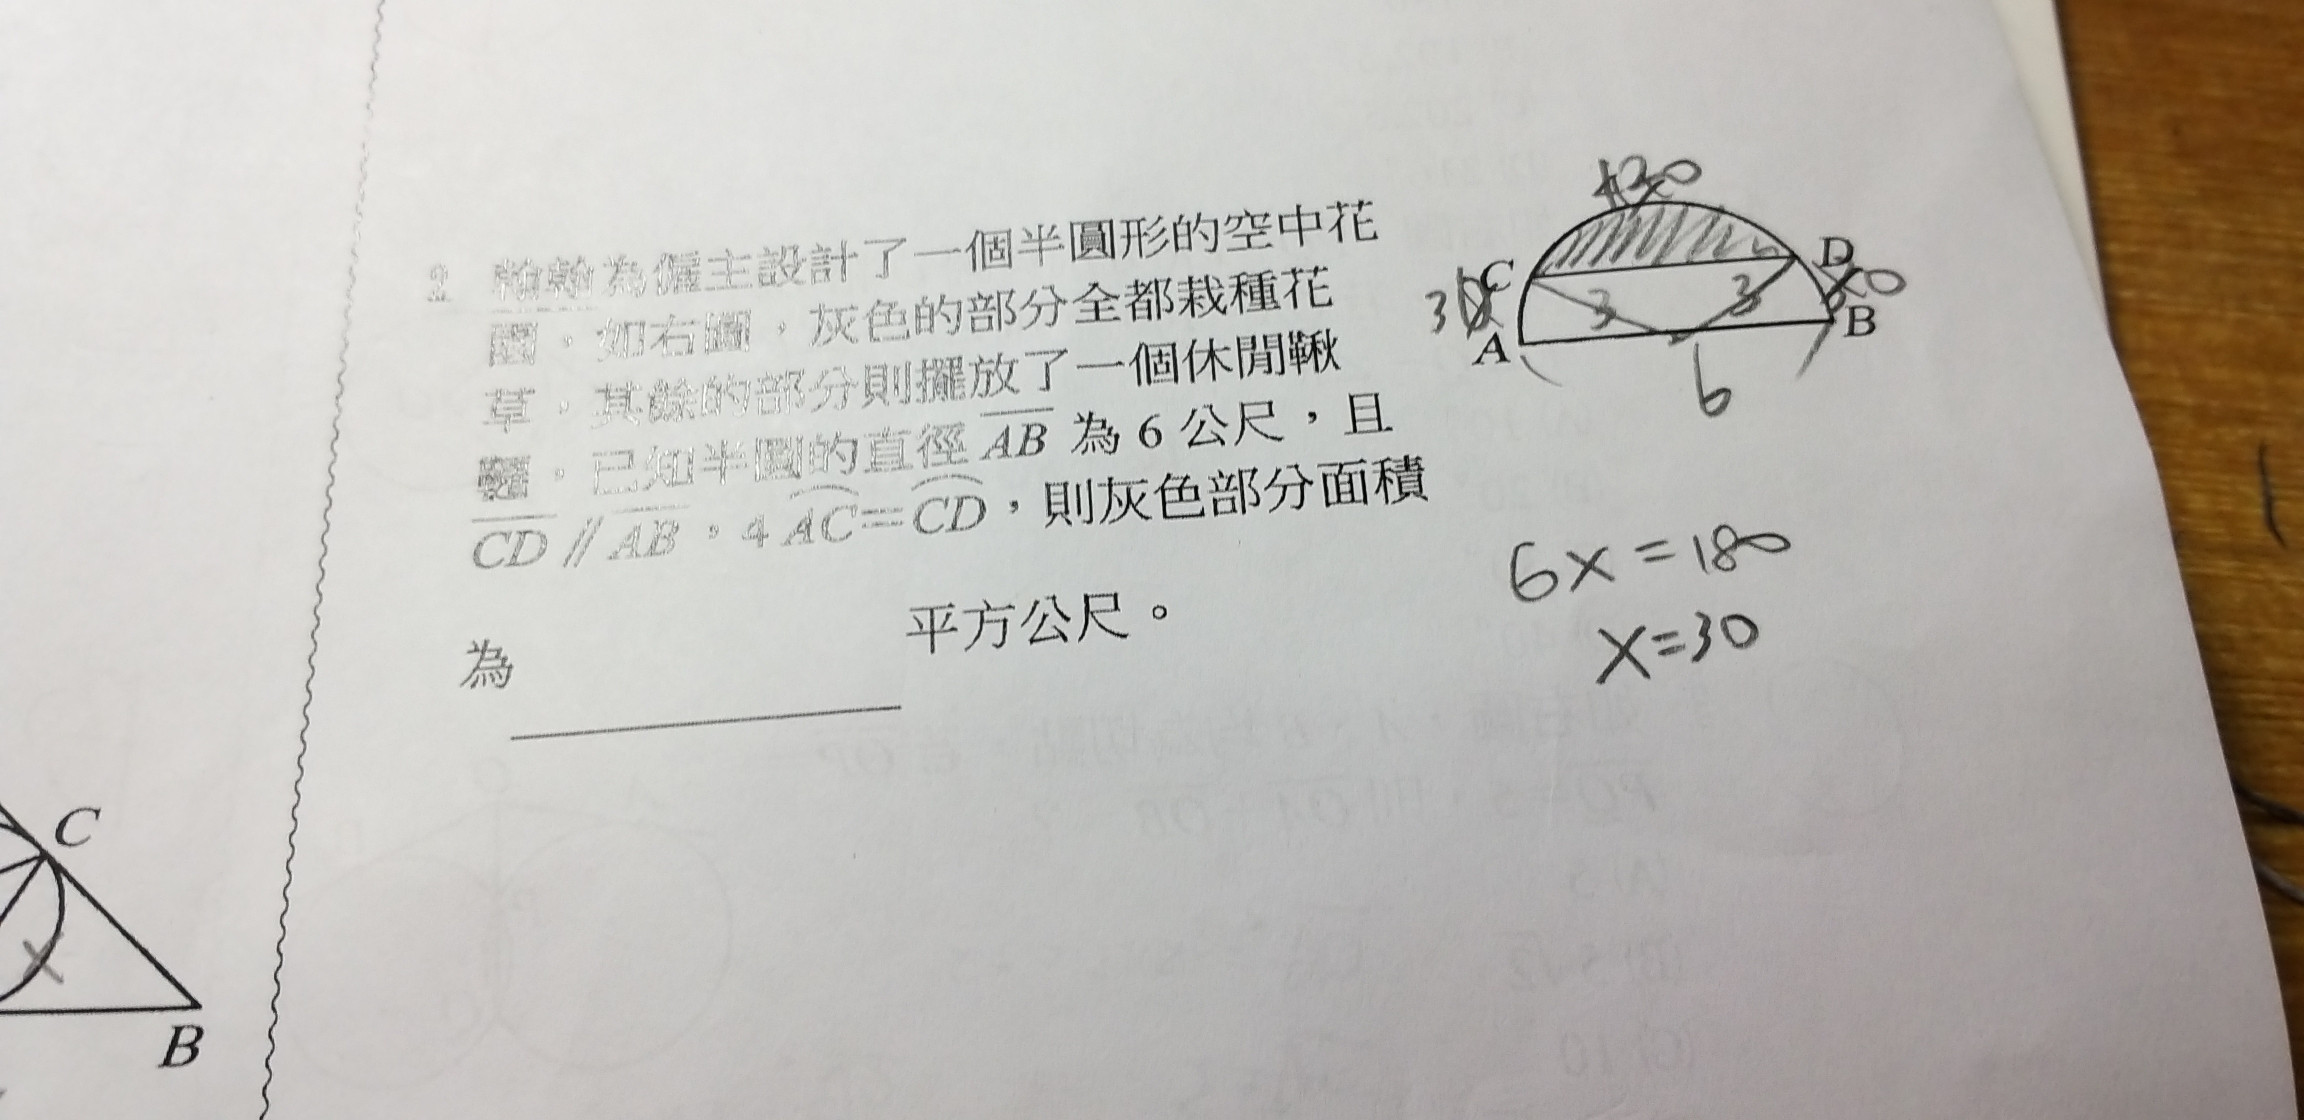 2 翰翰為僱主設計了一個半圓形的空中花
園，如右圖，灰色的部分全都栽種花
草，其餘的部分則擺放了一個休閒鞦
韆，已知半圓的直徑 AB 為 6 公尺，且
CD // AB，4 AC = CD，則灰色部分面積
為 平方公尺。
120
C
D
30
30
3
3
A
B
6
6x=180
x=30
C
B